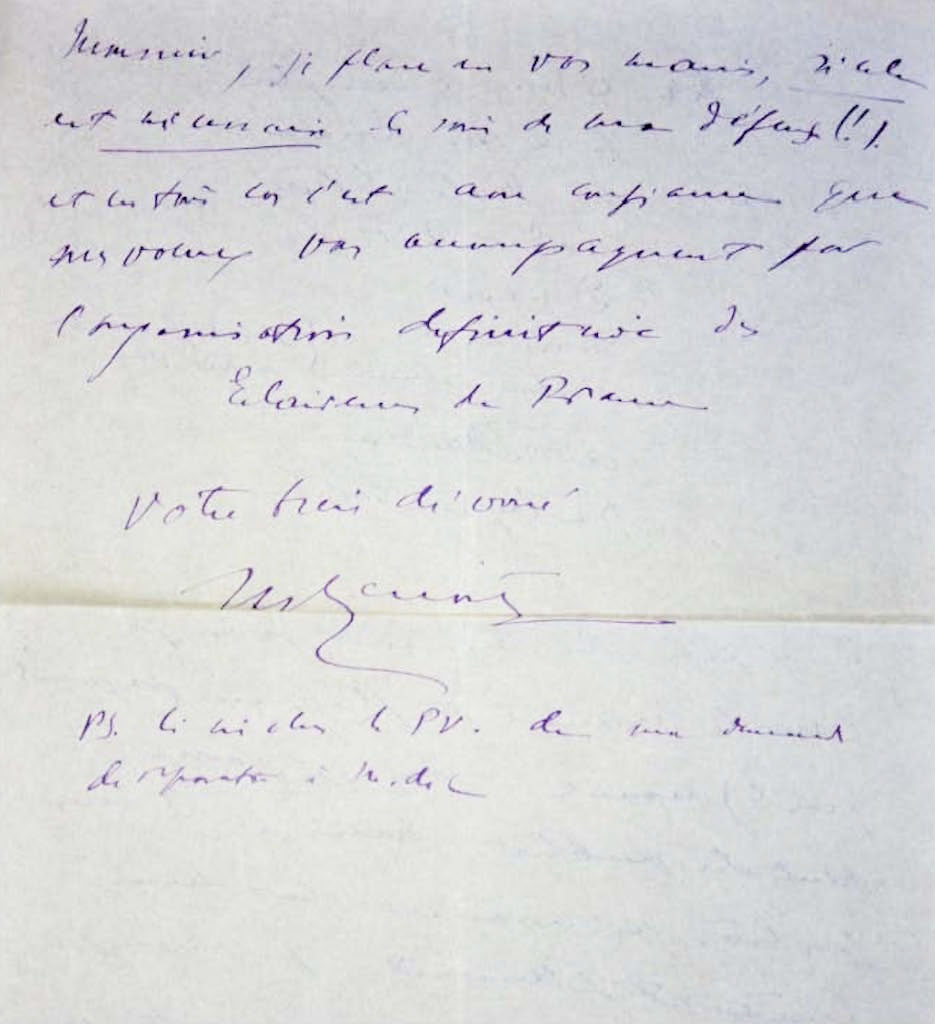 Monsieur, je place en vos mains, si cela
est nécessaire le soin de ma défense (!).
et en tous cas c'est avec confiance que
mes voeux vous accompagnent pour
l'organisation definitive des
Eclaireurs de France
Votre bien dévoué
PS. Ci inclus le PV. de ma demande
de réparation à M. de